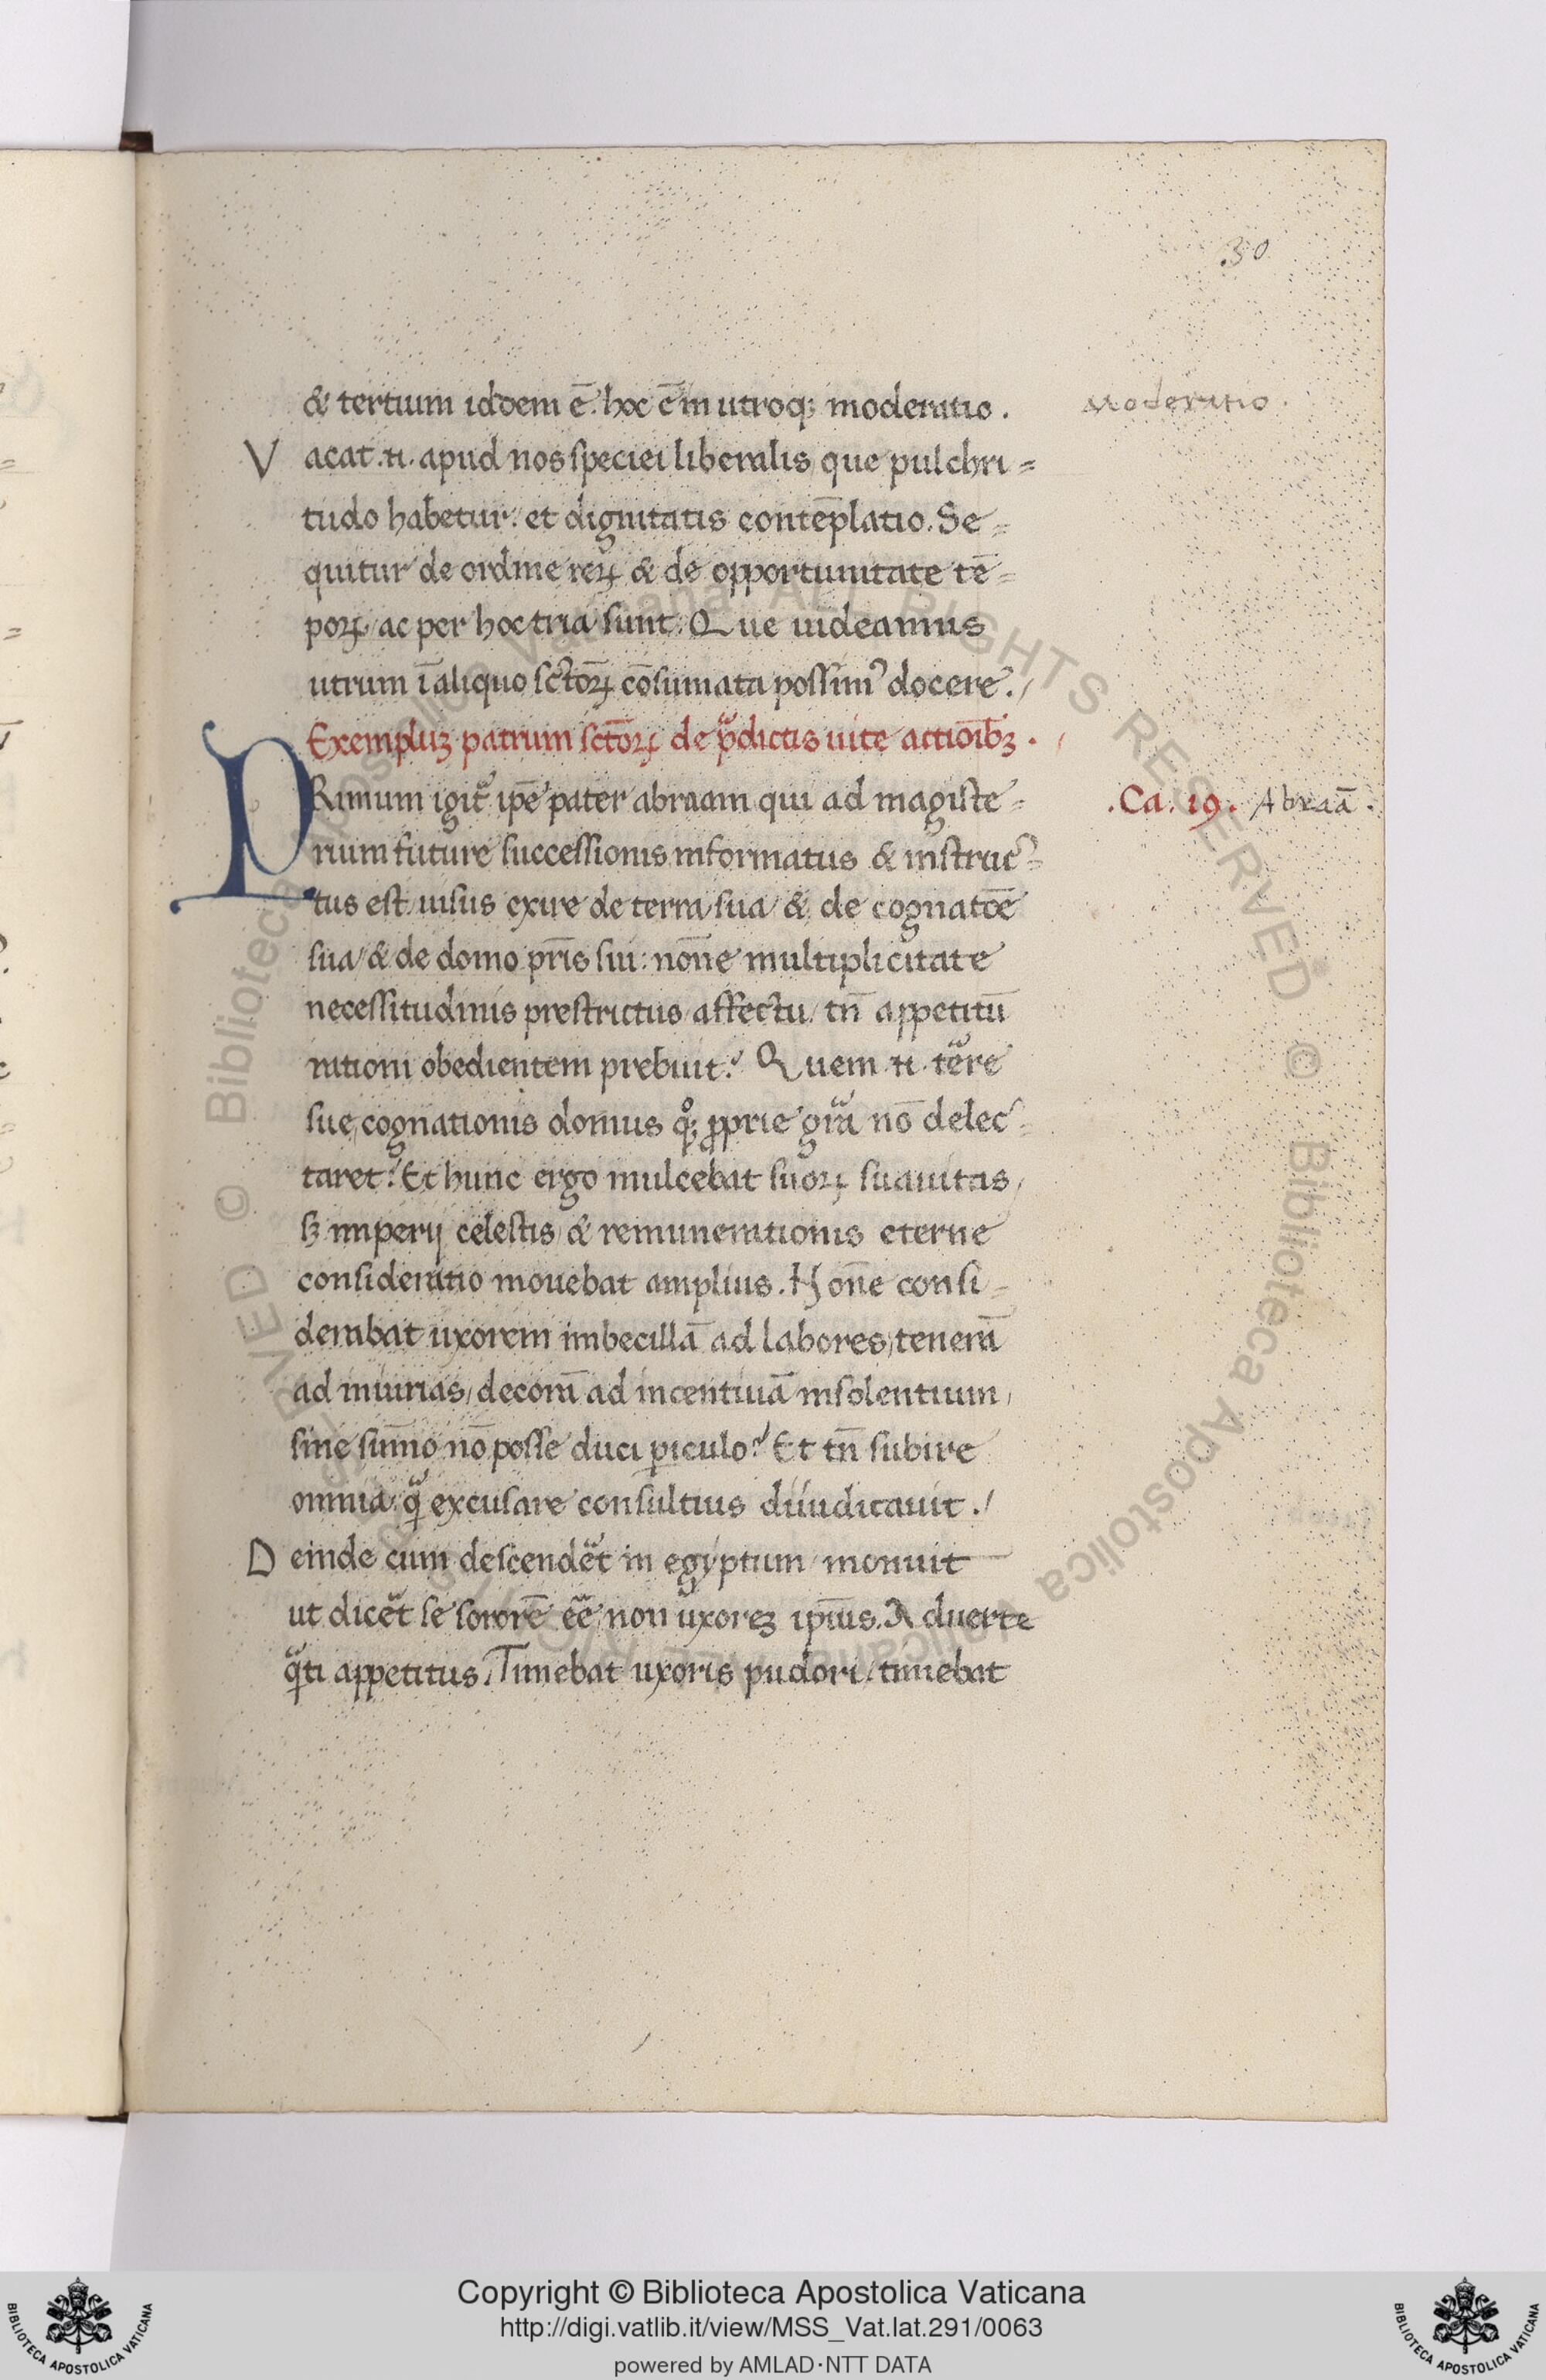 30
& tertium iddem ē. hoc ē in utroq; moderatio.
Moderatio.
Vacat .n. apud nos speciei liberalis que pulchri=
tudo habetur. et dignitatis contēplatio. Se=
quitur de ordine reꝝ & de opportunitate tē=
poꝝ, ac per hoc tria sunt. Que uideamus
utrum ī aliquo sc̄toꝝ cōsumata possimꝰ docere./
Exempluꝫ patrum sctōꝝ de p̄dictis uite actiōibꝫ.
PRimum igit᷑ ip̄e pater abraam qui ad magiste=
.Ca. 19. Abraā.
rium future successionis informatus & instruc=
tus est/ iusus exire de terra sua & de cognatōe
sua & de domo pr̄is sui: nōne multiplicitate
necessitudinis prestrictus affectu/ tn̄ appetitū
rationi obedientem prebuit? Quem .n. terͣe
sue, cognationis domus qͦꝫ ꝓprie grͣa nō delec=
taret? Et hunc ergo mulcebat suoꝝ suauitas/
sꝫ imperij celestis/ & remunerationis eterne
consideratio mouebat amplius. Nōne consi=
derabat uxorem imbecillā ad labores/ tenerā
ad iniurias/ decorā ad incentiuā insolentium/
sine sūmo nō posse duci ꝑiculo? Et tn̄ subire
omnia qͣ excusare consultius diiudicauit./
Deinde cum descendēt in egyptum/ monuit
ut dicēt se sororē eē/ non uxoreꝫ ipīus. Aduerte
qͣti appetitus. Timebat uxoris pudori/ timebat
Copyright © Biblioteca Apostolica Vaticana
http://digi.vatlib.it/view/MSS_Vat.lat.291/0063
powered by AMLAD·NTT DATA
BIBLIOTECA APOSTOLICA VATICANA
BIBLIOTECA APOSTOLICA VATICANA